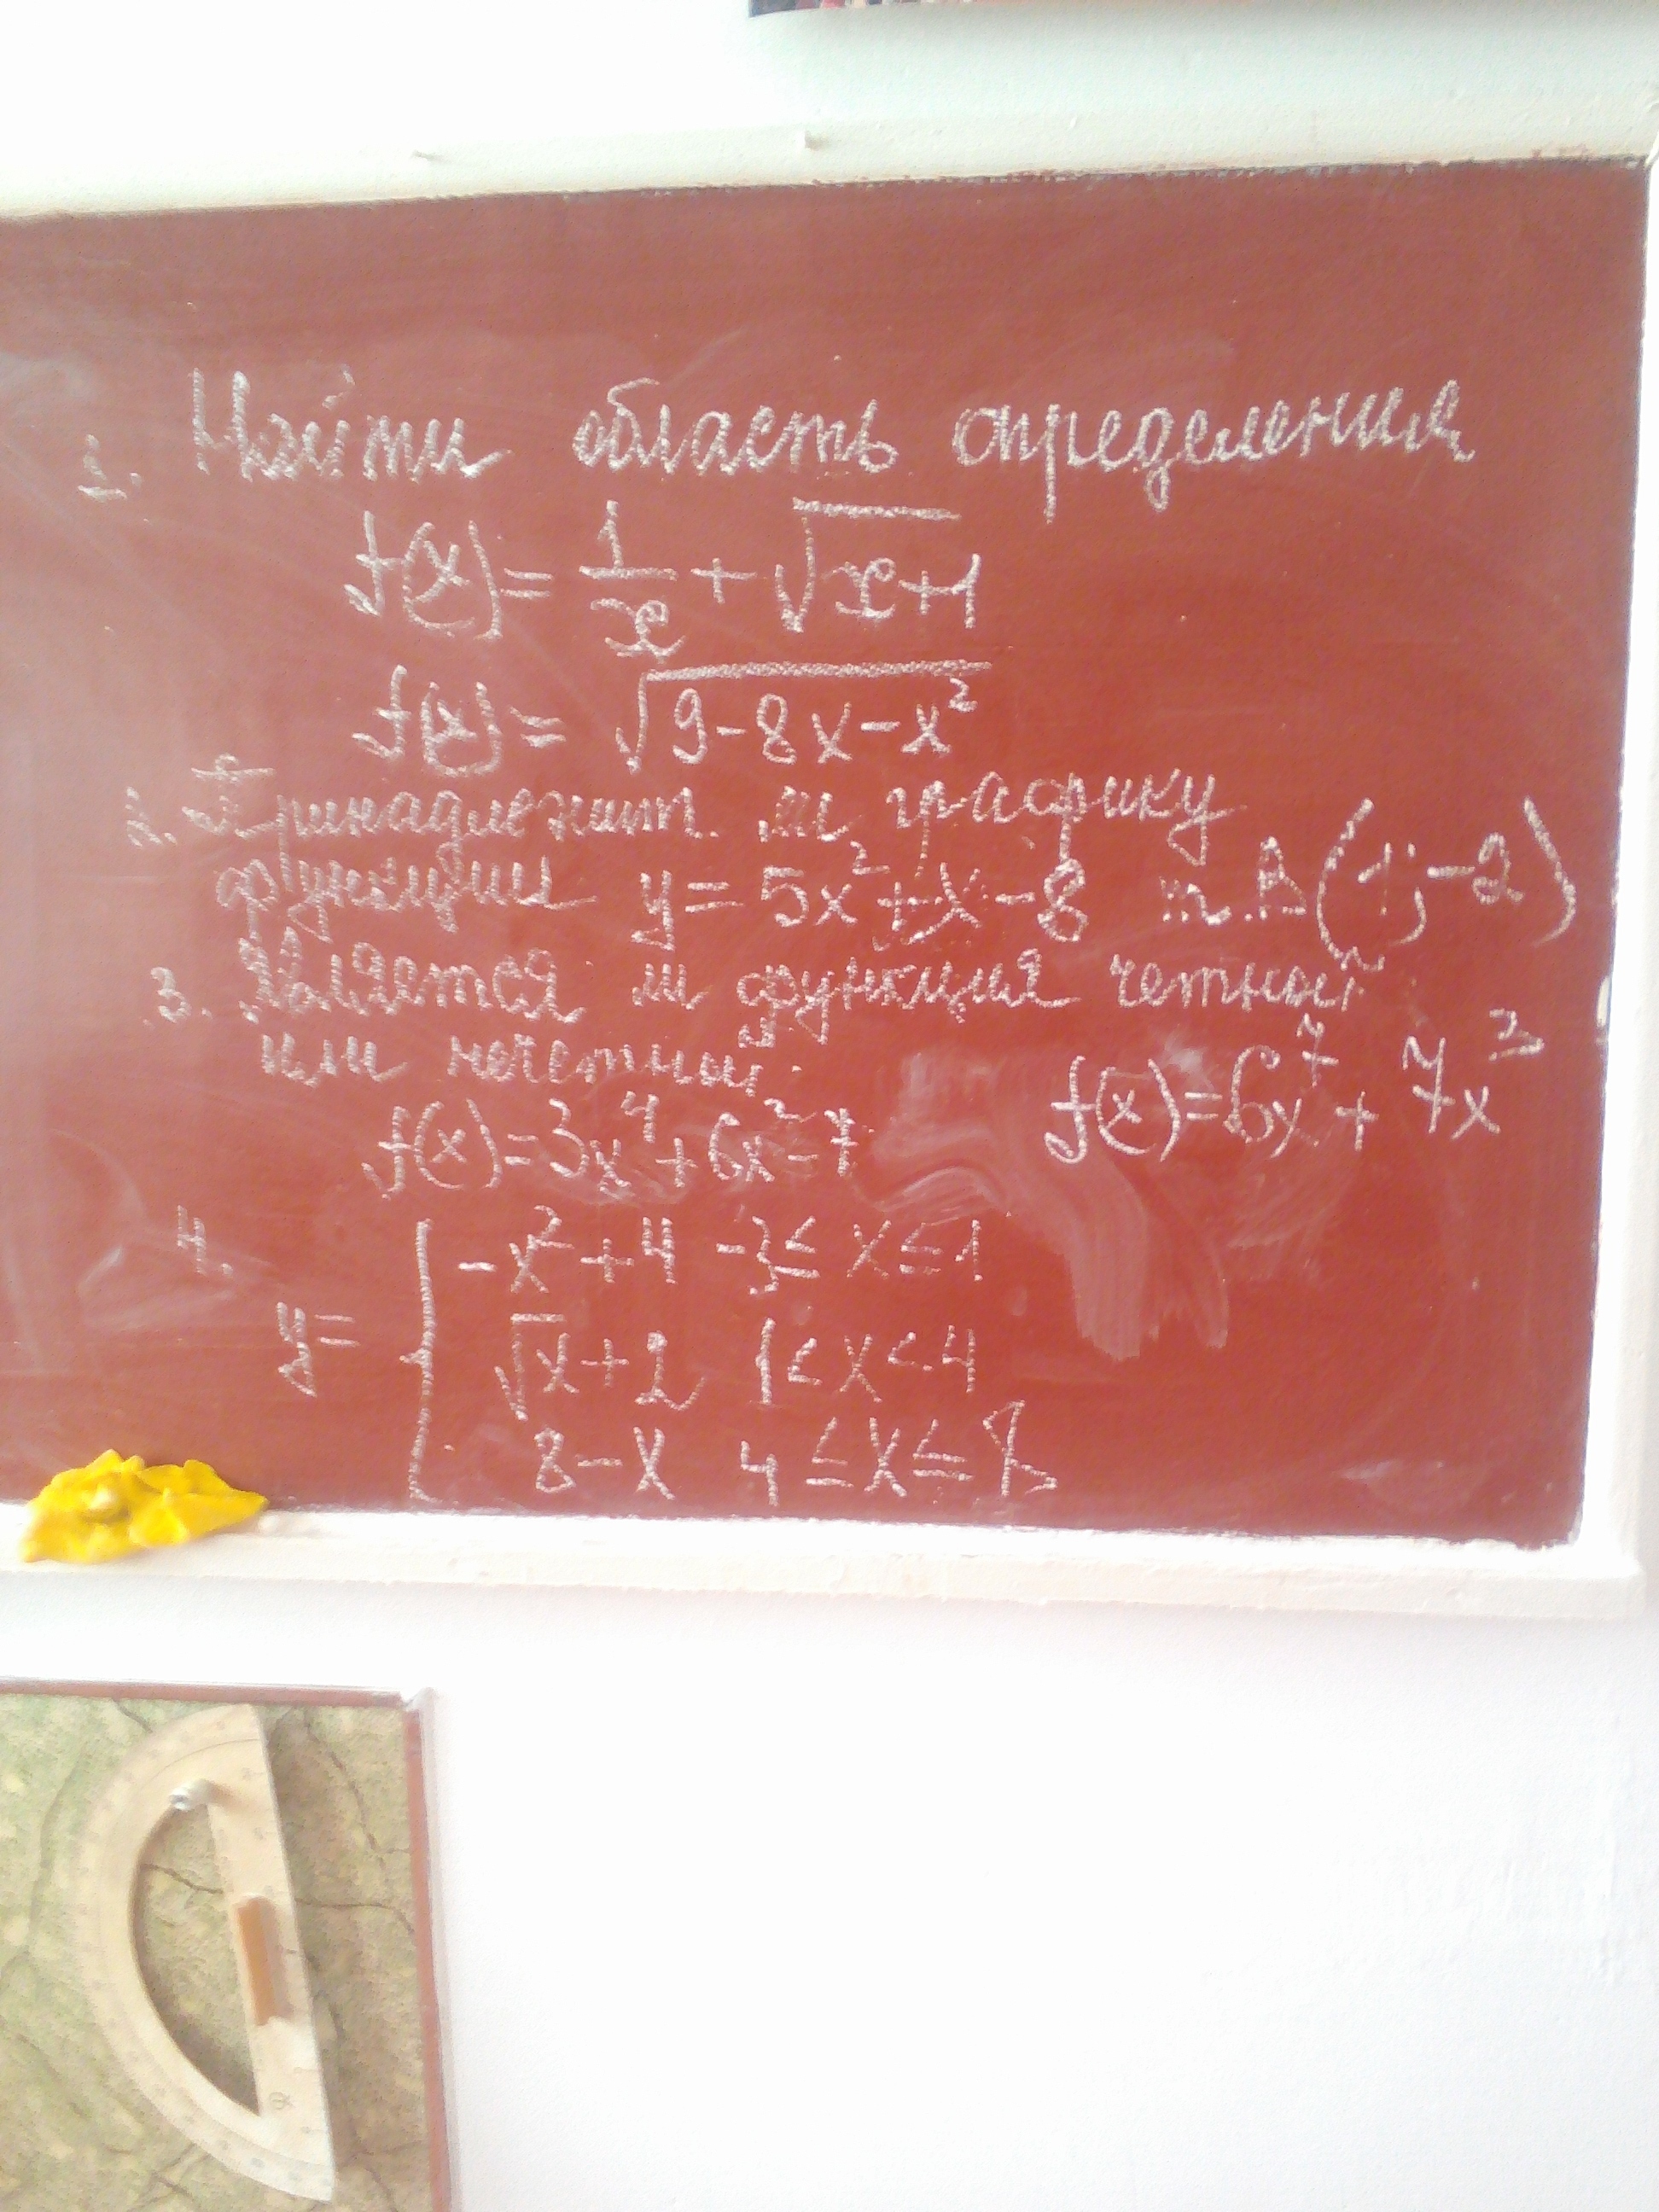 1. Найти область определения
f(x) = 1/x + √(x+1)
f(x) = √(9-8x-x²)
2. Принадлежит ли графику
функции y = 5x² + x - 8 т. А (1; -2)
3. Является ли функция четной
или нечетной:
f(x) = 3x⁴ + 6x² - 7 f(x) = 6x⁷ + 7x³
4. y = { -x² + 4 -3 ≤ x ≤ 1
√x + 2 1 < x < 4
8 - x 4 ≤ x ≤ 8